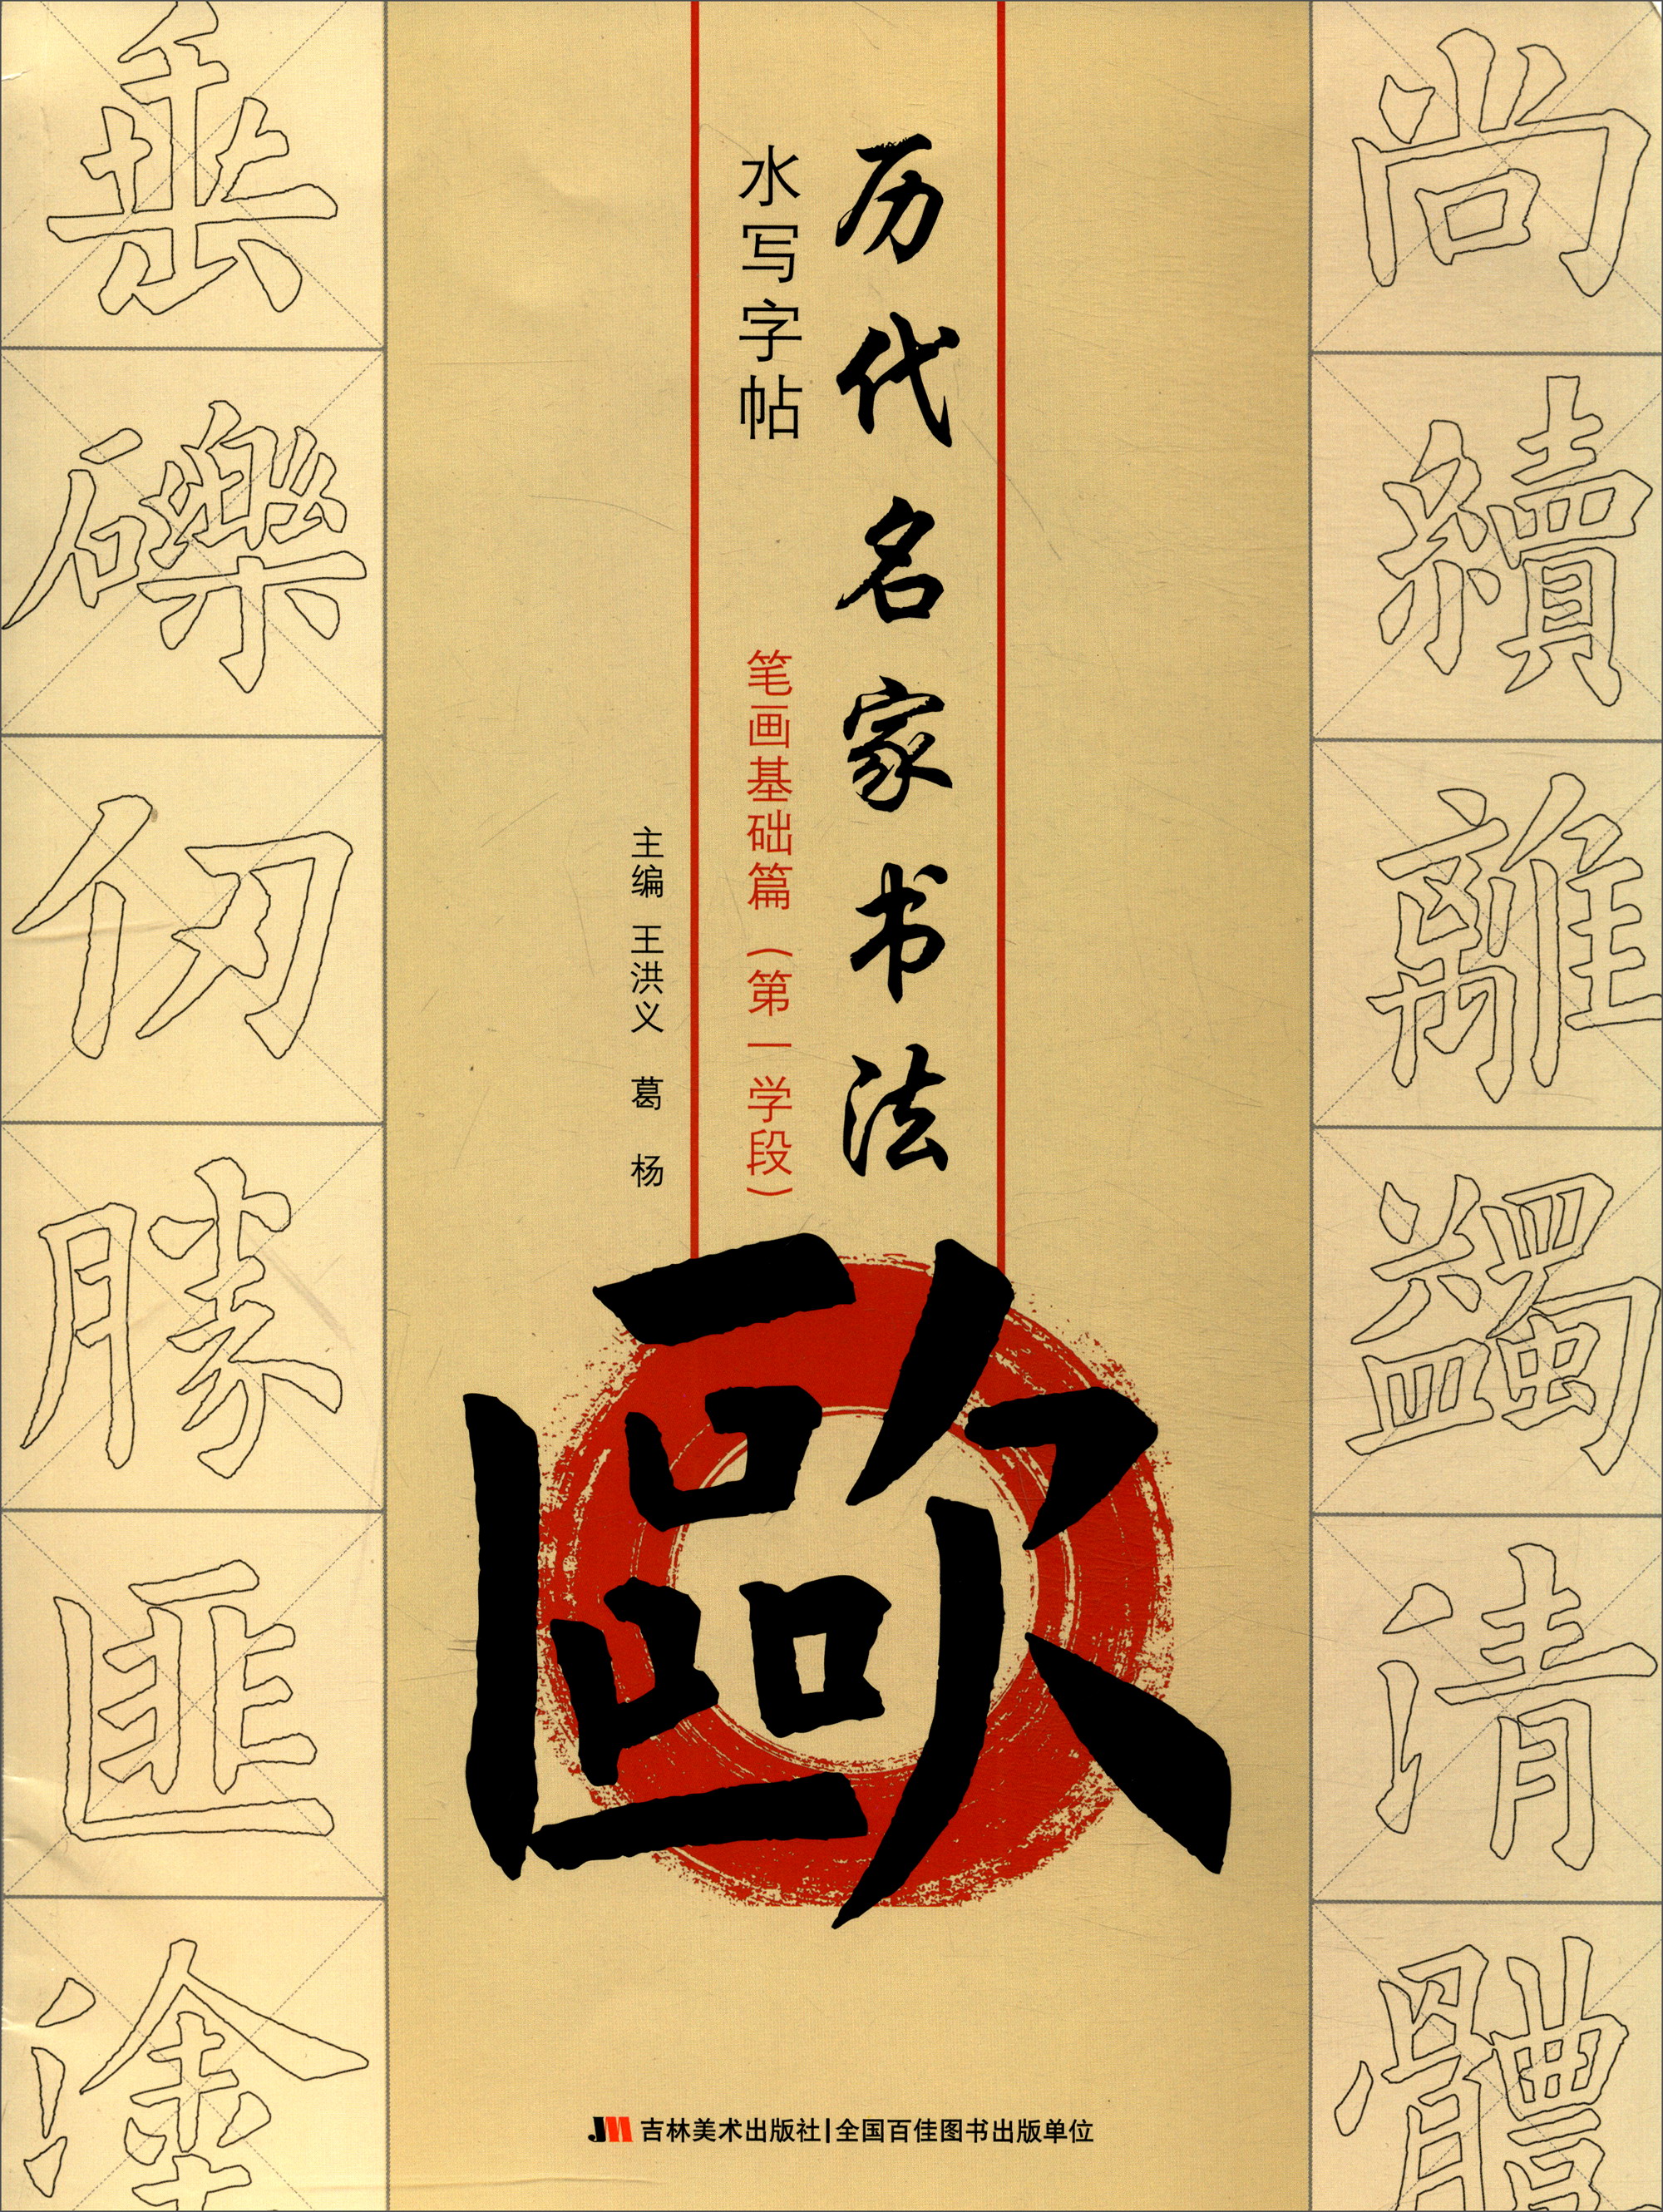 历代名家书法
水写字帖
笔画基础篇（第一学段）
主编 王洪义 葛 杨
歐
尚
續
離
蠲
清
體
垂
礫
仞
勝
匪
塗
JM 吉林美术出版社|全国百佳图书出版单位